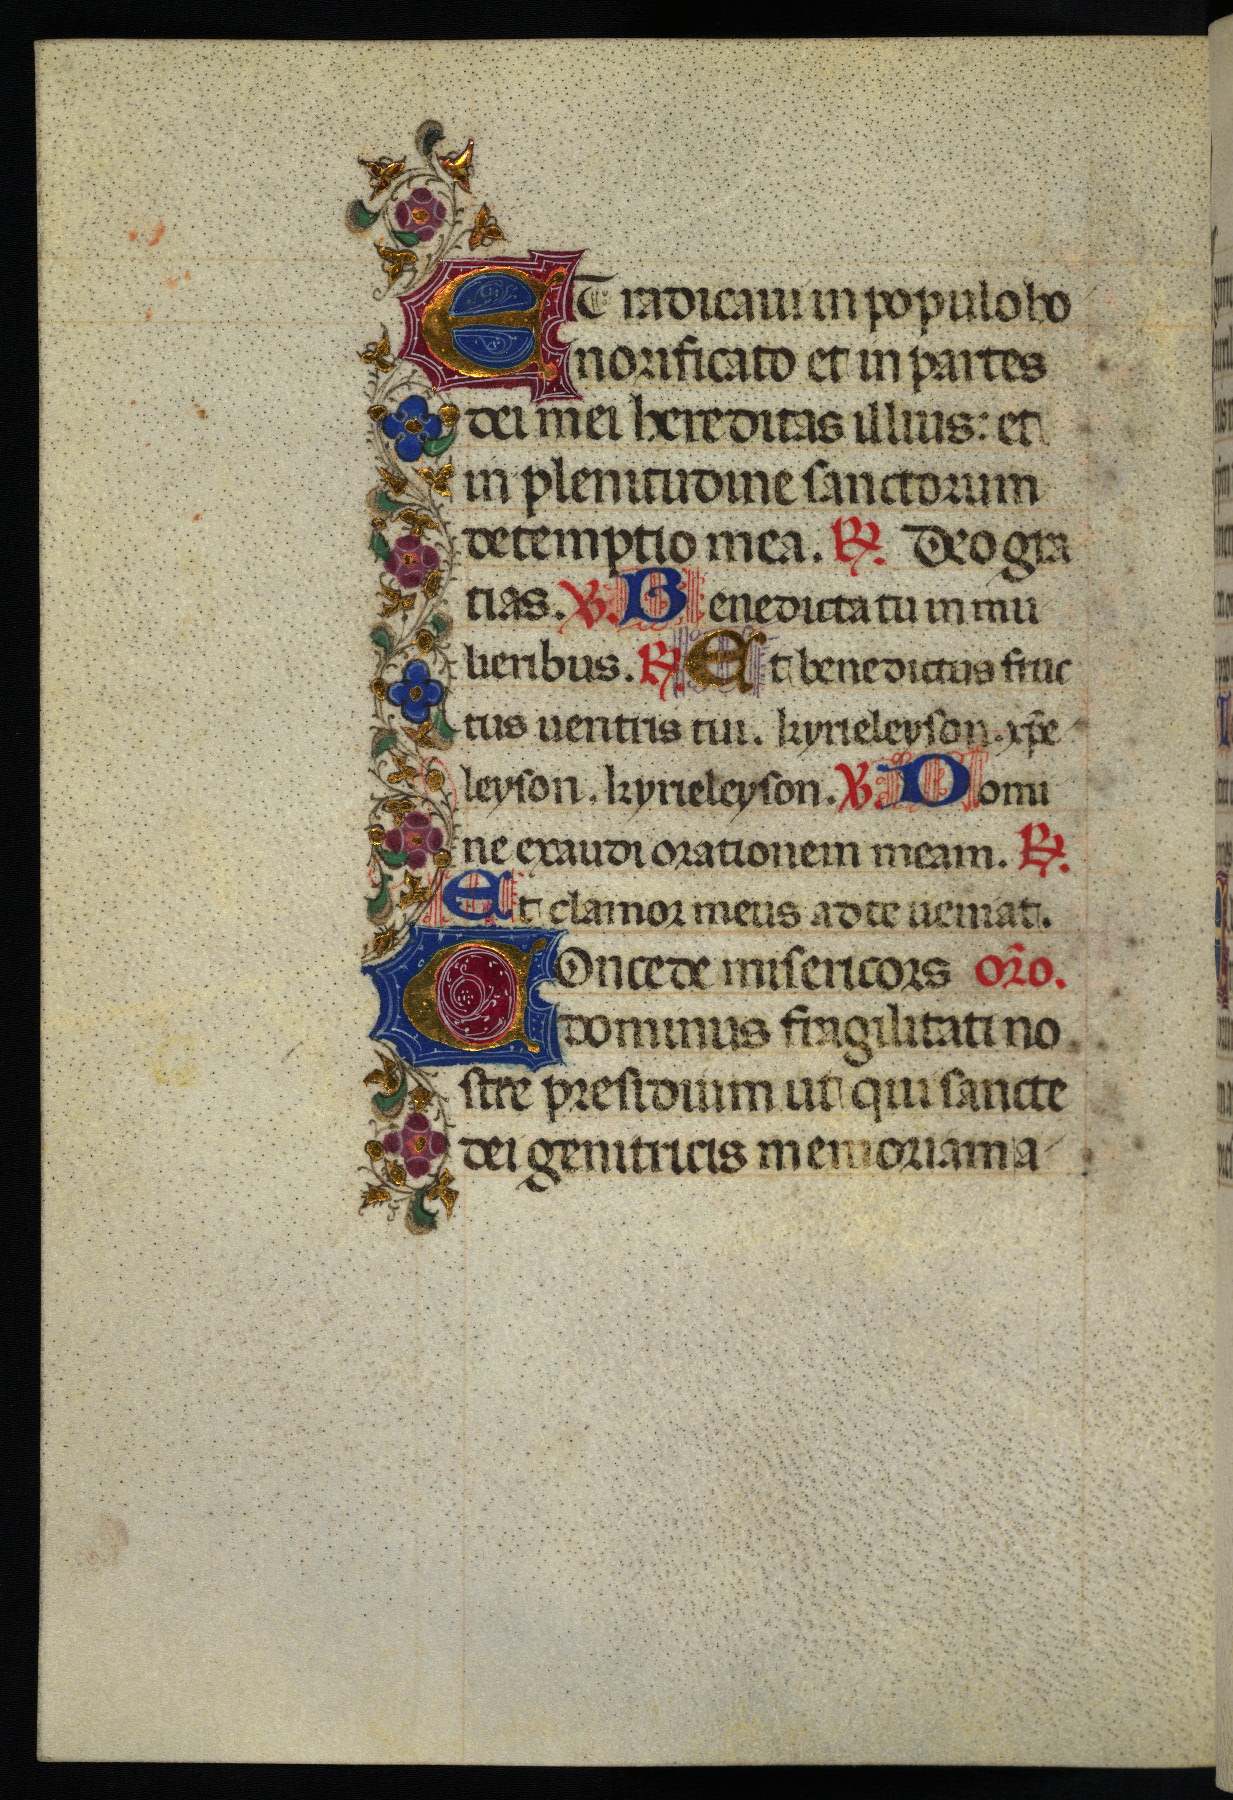 ET radicaui in populo ho
norificato et in partes
dei mei hereditas illius: et
in plenitudine sanctorum
detemptio mea. ℟. Deo gra
tias. ℣. Benedicta tu in mu
lieribus. ℟. Et benedictus fruc
tus uentris tui. kyrieleyson. xp̄e
leyson. kyrieleyson. ℣. Domi
ne exaudi orationem meam. ℟.
Et clamor meus ad te ueniat.
COncede misericors or̄o.
dominus fragilitati no
stre presidium ut qui sancte
dei genitricis memoriam a